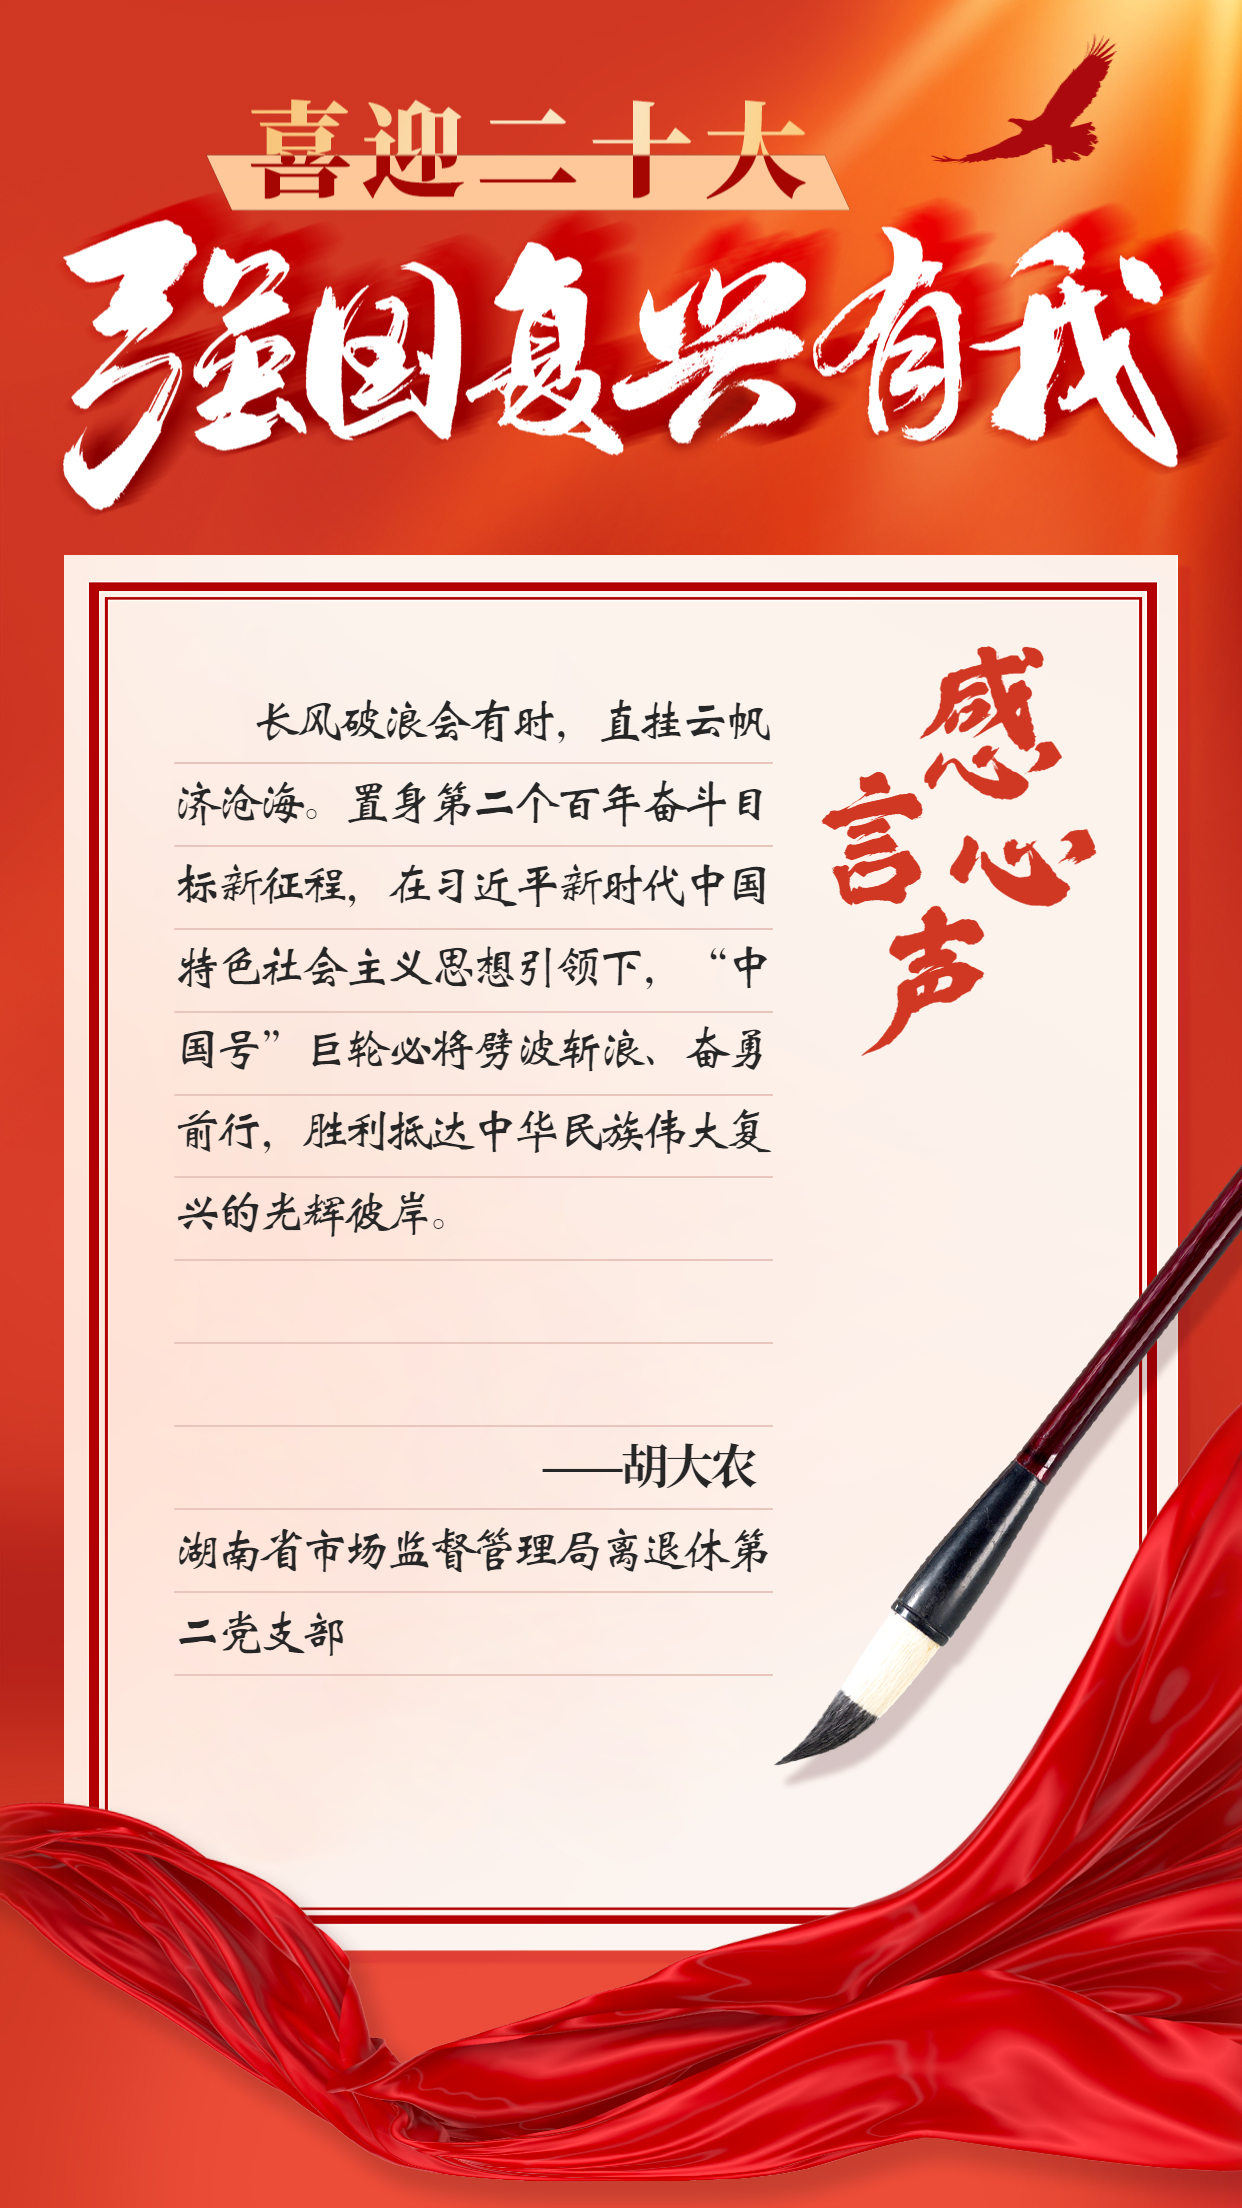 喜迎二十大
强国复兴有我
感言心声
长风破浪会有时，直挂云帆
济沧海。置身第二个百年奋斗目
标新征程，在习近平新时代中国
特色社会主义思想引领下，“中
国号”巨轮必将劈波斩浪、奋勇
前行，胜利抵达中华民族伟大复
兴的光辉彼岸。
——胡大农
湖南省市场监督管理局离退休第
二党支部